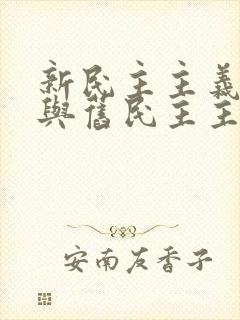 新民主主義
與舊民主主
安南友香子